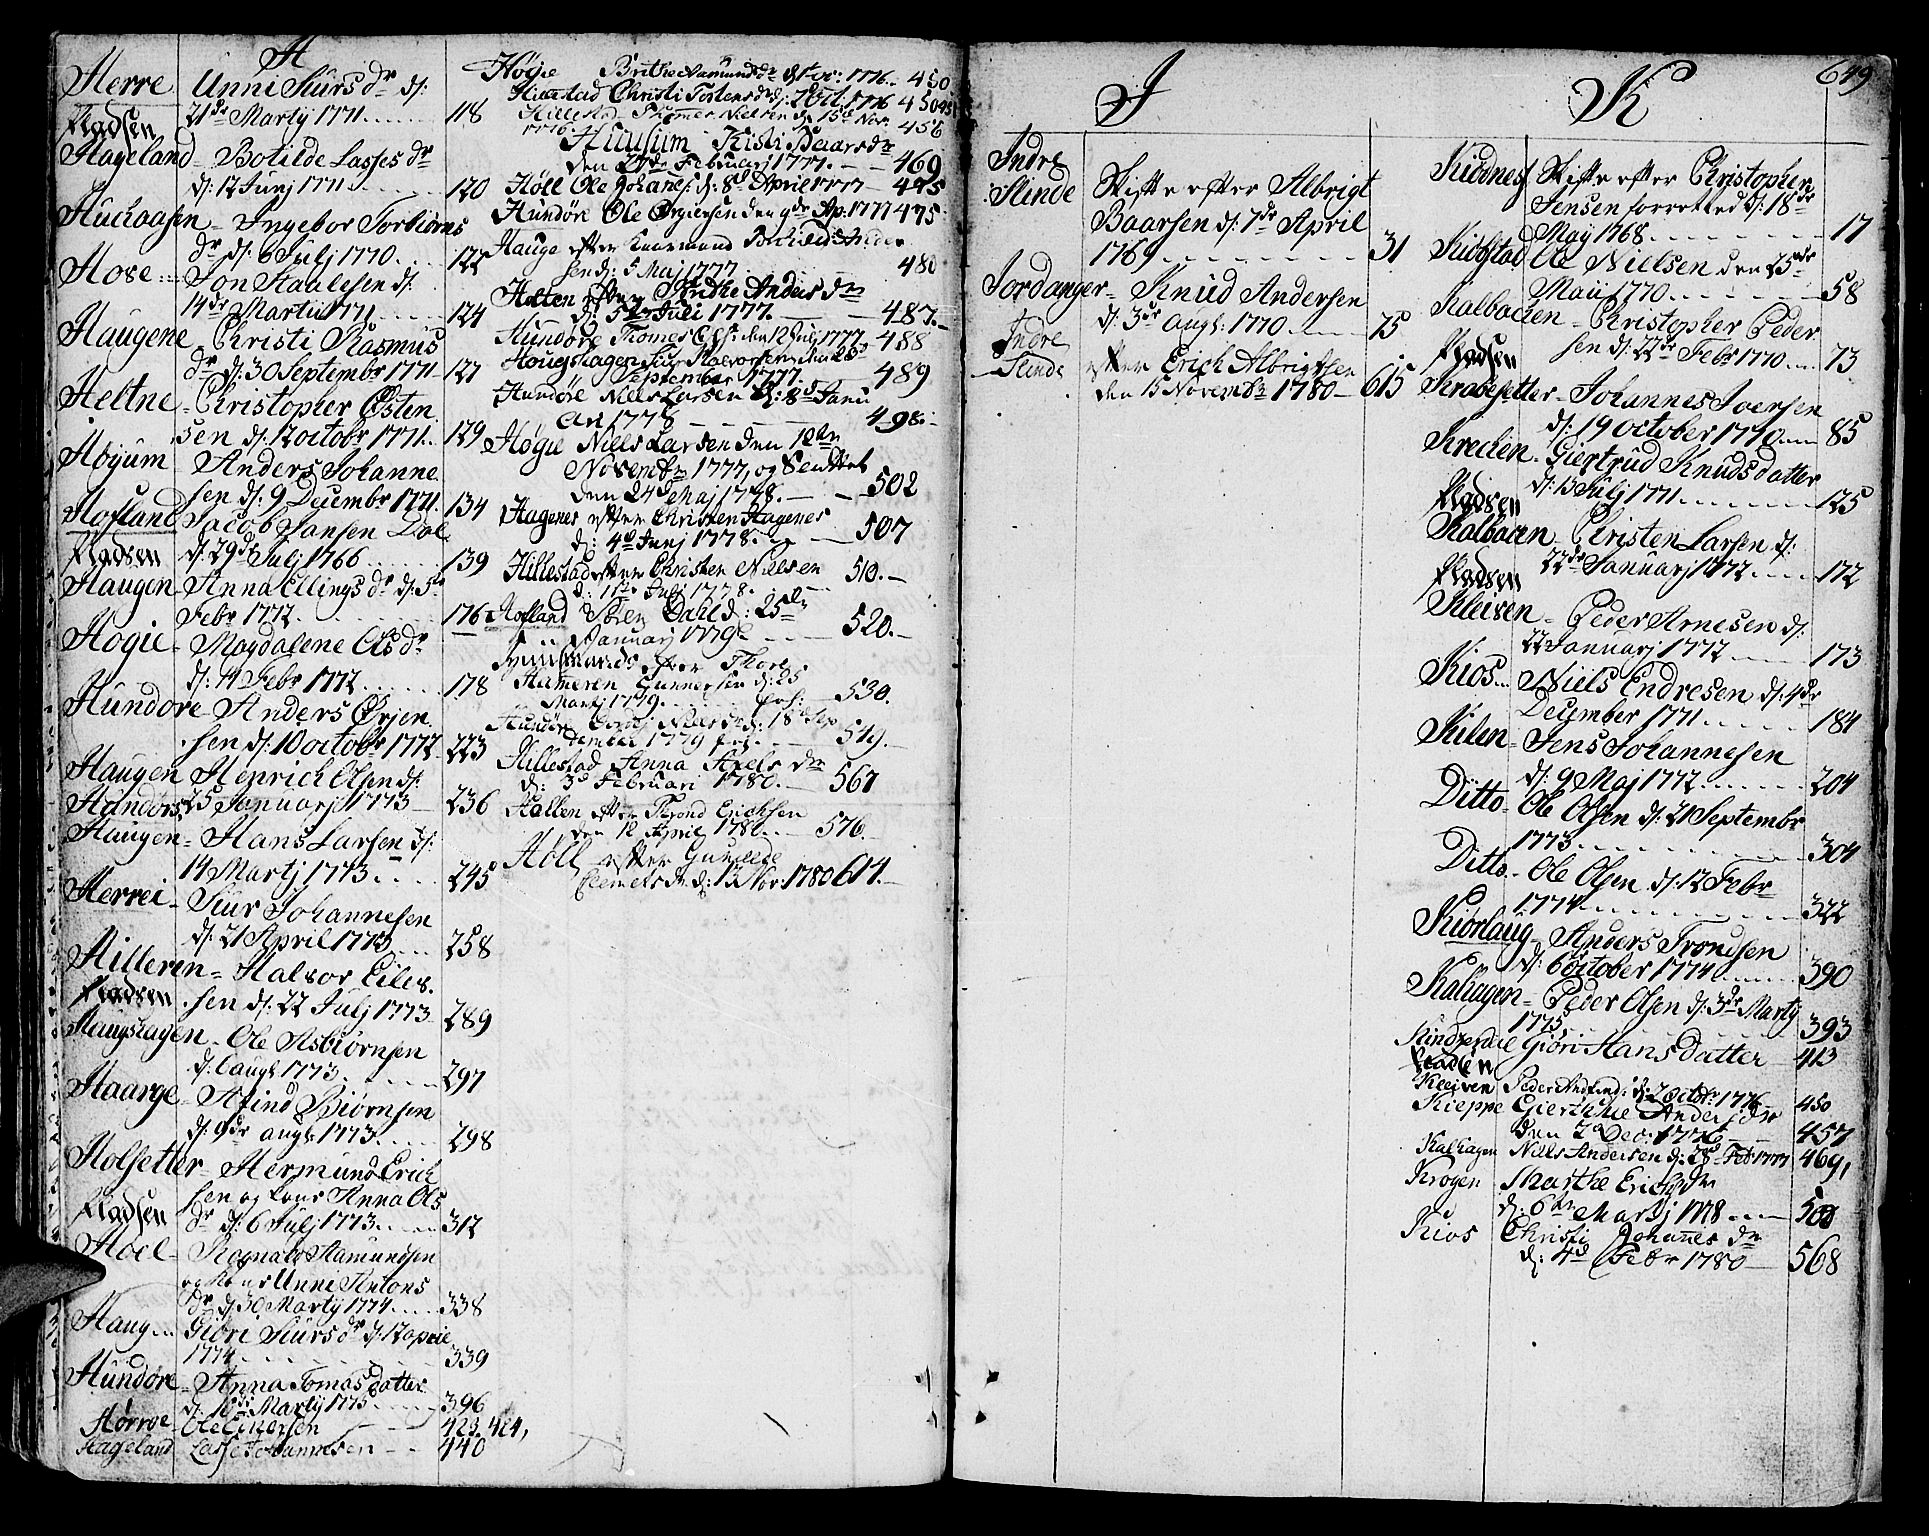 H
Herre Unni Siurs dr d:
Pladsen 21de Martij 1771 118
Hageland Botilde Lasses dr
d: 12 Junj 1771 120
Huchaasen Ingebor Torbiørns
dr d: 6 Julj 1770 122
Hove Jon Haalesen d:
14de Martii 1771 124
Haugene Christi Rasmus
dr d: 30 Septembr 1771 127
Heltne Christopher Østen
sen d: 12 octobr 1771 129
Høyum Anders Johanne
sen d: 9 Decembr 1771 134
Hofland Jacob Jansen Dal
Pladsen d: 29de Julj 1766 139
Haugen Anna Ellings dr d: 5te
Febr 1772 176
Høgie Magdalene Ols dr
d: 14 Febr 1772 178
Hundøre Anders Ørjen
sen d: 10 octobr 1772 223
Haugen Henrich Olsen d:
Hundøre 25 Januarj 1773 236
Haugen Hans Larsen d:
14 Martj 1773 245
Herrei Siur Johannesen
d: 21 April 1773 258
Hilleren Halvor Eilev
Pladsen sen d: 22 Julj 1773 289
Haugshagen Ole Asbiørnsen
d: augl 1773 297
Haarge Afind Biørnsen
d: 9de augl 1773 298
Holsetter Hermund Erich
sen og kone Anna Ols
Pladsen dr d: 6 Julj 1773 317
Hoel Rognald Hamundsen
og Kone Unni Antons
dr d: 30 Martij 1774 338
Haug Giøri Siurs dr d: 12 april
1774 339
Hundøre Anna Tomas datter
d: 10de Martij 1775 396
Hørvoe Ole Einersen 423. 424,
Hageland Lasse Johannesen 440
Høgie Brithe Aamunds dr d: 1 oc: 1776 450
Hillestad Christi Tostens dr d: 2 Oct. 1776 450
Hillestad Thomes Nielsen d: 15d Nov: 1776 456
Huusum Kisti Baars dr
den 27de Februarj 1777 469
Høll Ole Johanes: d: 8d April 1777 475
Hundøre Ole Ørgiensen den 9de Ap. 1777 475
Hauge efter Kaarmand Botholds Ander
sen d: 5 Maj 1777 480
Holten efter Brithe Andus dr
d: 5te Juli 1777 487
Hundøre Thomes Ols: den 12 Julj 1777 488
Hougshagen Siur Halvorsen den 25d
September 1777 489
Hundøre Niels Larsen d: 8d Janu
ari 1778 498
Høgie Niels Larsen den 12te
Novembr 1777, og Sluttet
den 24d Maj 1778 502
Hagenes efter Christen Hagenes
d: 4d Junj 1778 507
Hillestad efter Christen Nielsen
d: 11te Julj 1778 510
Hofland Søren Dahl d: 25de
Januarj 1779 520
efter Thore
Hameren Gunnersen d: 25
Martj 1779 530
Hundøre Niels dr d: 18de Sep
tember 1779 549
Hillestad Anna Axels dr
d: 3d Februari 1780 567
Hallen efter Trond Erichsen
den 12 April 1780 576
Høll efter Gunilde
Clemets dr d: 13 Nov: 1780 614
I
Indre
Slinde Skifte efter Albrigt
Baarsen d: 7de April
1769 31
Jordanger Knud Andersen
d: 3de augl: 1770 75
Indre
Slinde efter Erich Albrigtsen
den 15 Novembr 1780 615
649
K
Kiødnes Skifte efter Christopher
Jensen forretted d: 18de
May 1768 17
Kiøbstad Ole Nielsen den 25de
Maii 1770 58
Kalbachen Christopher Peder
Pladsen sen d: 22de Febr 1770 73
Krabesetter Johannes Joersen
d: 19 october 1770 85
Krechen Giertrud Knudsdatter
Pladsen d: 13 Julj 1771 125
Kalbacen Christen Larsen d:
Pladsen 22de Januarj 1772 172
Kleiven Peder Arnesen d:
22 Januarj 1772 173
Kios Niels Endresen d: 4de
December 1771 184
Kilen Jens Johannesen
d: 9 Maj 1772 204
Ditto Ole Olsen d: 21 Septembr
1773 304
Ditto Ole Olsen d: 12 Febr
1774 322
Kiørlaug Anders Trondsen
d: 6 october 1774 390
Kalhagen Peder Olsen d: 3de Martij
1775 393
Kinderdal Giøri Hans datter 413
Pladsen
Kleiven Peder d: 2 Octbr: 1776 450
Kieppe Gierthrue Anders dr
den 7d Dec: 1776 457
Kalhagen Niels Andersen d: 28d Feb 1777 469,
Krogen Marthe Erichs dr
d: 6te Martj 1778 502
Kios Christi Johanes dr
d: 4d Febr 1780 568